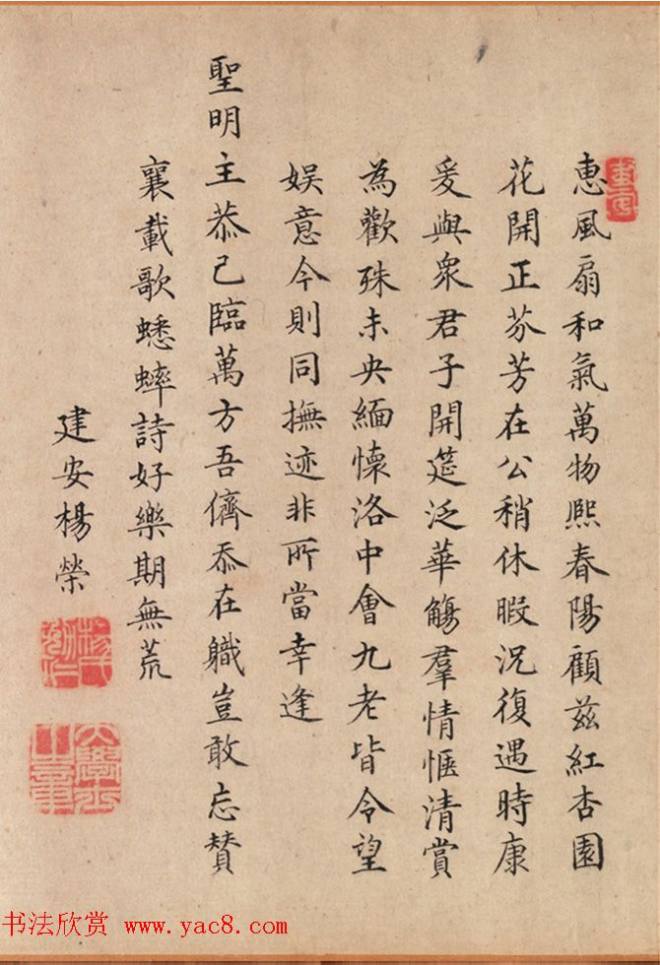 惠風扇和氣萬物熙春陽顧茲紅杏園
花開正芬芳在公稍休暇況復遇時康
爰與衆君子開莚泛華觴羣情愜清賞
為歡殊未央緬懷洛中會九老皆令望
娱意今則同撫迹非所當幸逢
聖明主恭己臨萬方吾儕忝在職豈敢忘贊
襄載歌蟋蟀詩好樂期無荒
建安楊榮
楊氏勉仁
书法欣赏 www.yac8.com